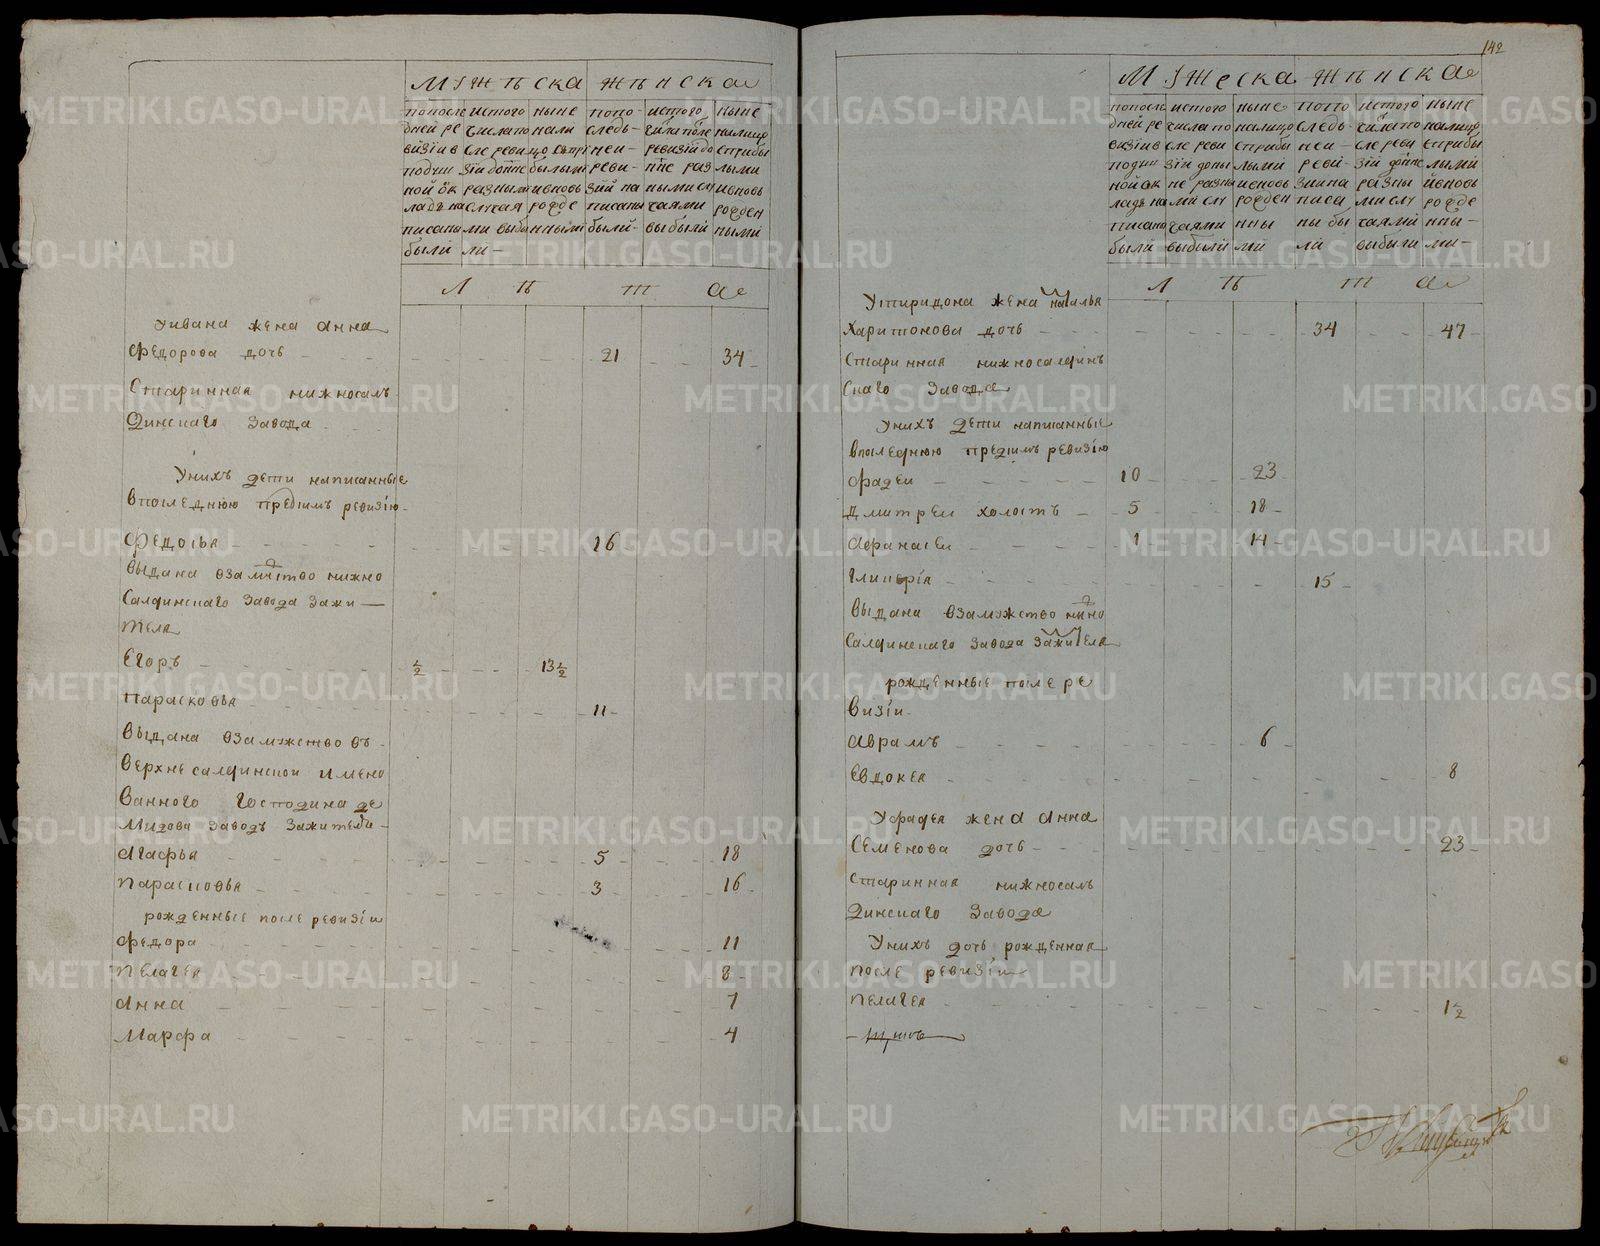 142
Мужъска Жънска
попосле
дней ре
визiи в
подуш
ной ок
ладъ на
писаны
были
истого
числа по
сле реви
зiи до ны не
разными
случая
ми выбы
ли
ныне
нали
цо с при
былыми
и вновь
рожде
нными
попо
следь
ней
реви
зiй на
писаны
были
истого
числа после
ревизiй до
не раз
ными слу
чаями
выбыли
ныне
налицо
с прибы
лыми
и вновь
рожден
ными
Л ѣ т а
У ивана жена анна
федорова дочь 21 34
Старинная нижносалъ
динскаго завода
Унихъ дети написанные
впоследнюю предъимъ ревизiю
Федосья 16
выдана взамужство нижно
Салдинскаго завода зажи
теля
Егоръ ½ 13½
Парасковья 11
выдана взамужство въ
верхнесалдинской имено
ванного Господина де
мидова заводъ зажителя
Агафья 5 18
Парасковья 3 16
рожденные после ревизiи
Федора 11
Пелагея 8
Анна 7
Марфа 4
Мужеска Жънска
попосле
дней ре
визiи в
подуш
ной ок
ладъ на
писано
были
истого
числа по
сле реви
зiи доны
не разны
ми слу
чаями
выбыли
ныне
налицо
с прибы
лыми
и вновь
рожден
нны
ми
попо
следь
ней
реви
зии на
писа
ны бы
ли
истого
числа по
сле реви
зiй до не
разны
ми слу
чаями
выбыли
ныне
налицо
с прибы
лыми
и вновь
рожде
нны
ми
Л ѣ т а
У спиридона жена наталья
Харитонова дочь 34 47
Старинная нижносалдинъ
Скаго завода
Унихъ дети написанные
впоследнюю предъимъ ревизiю
фадеи 10 23
Дмитреи холостъ 5 18
Афанасеи 1 14
Гликерiя 15
выдана взамужество нижно
Салдинскаго завода зажителя
рожденные после ре
визiи
Аврамъ 6
Евдокея 8
У фадея жена анна
Семенова дочь 23
Старинная нижносалъ
динскаго завода
Унихъ дочь рожденная
после ревизiи
Пелагея 1½